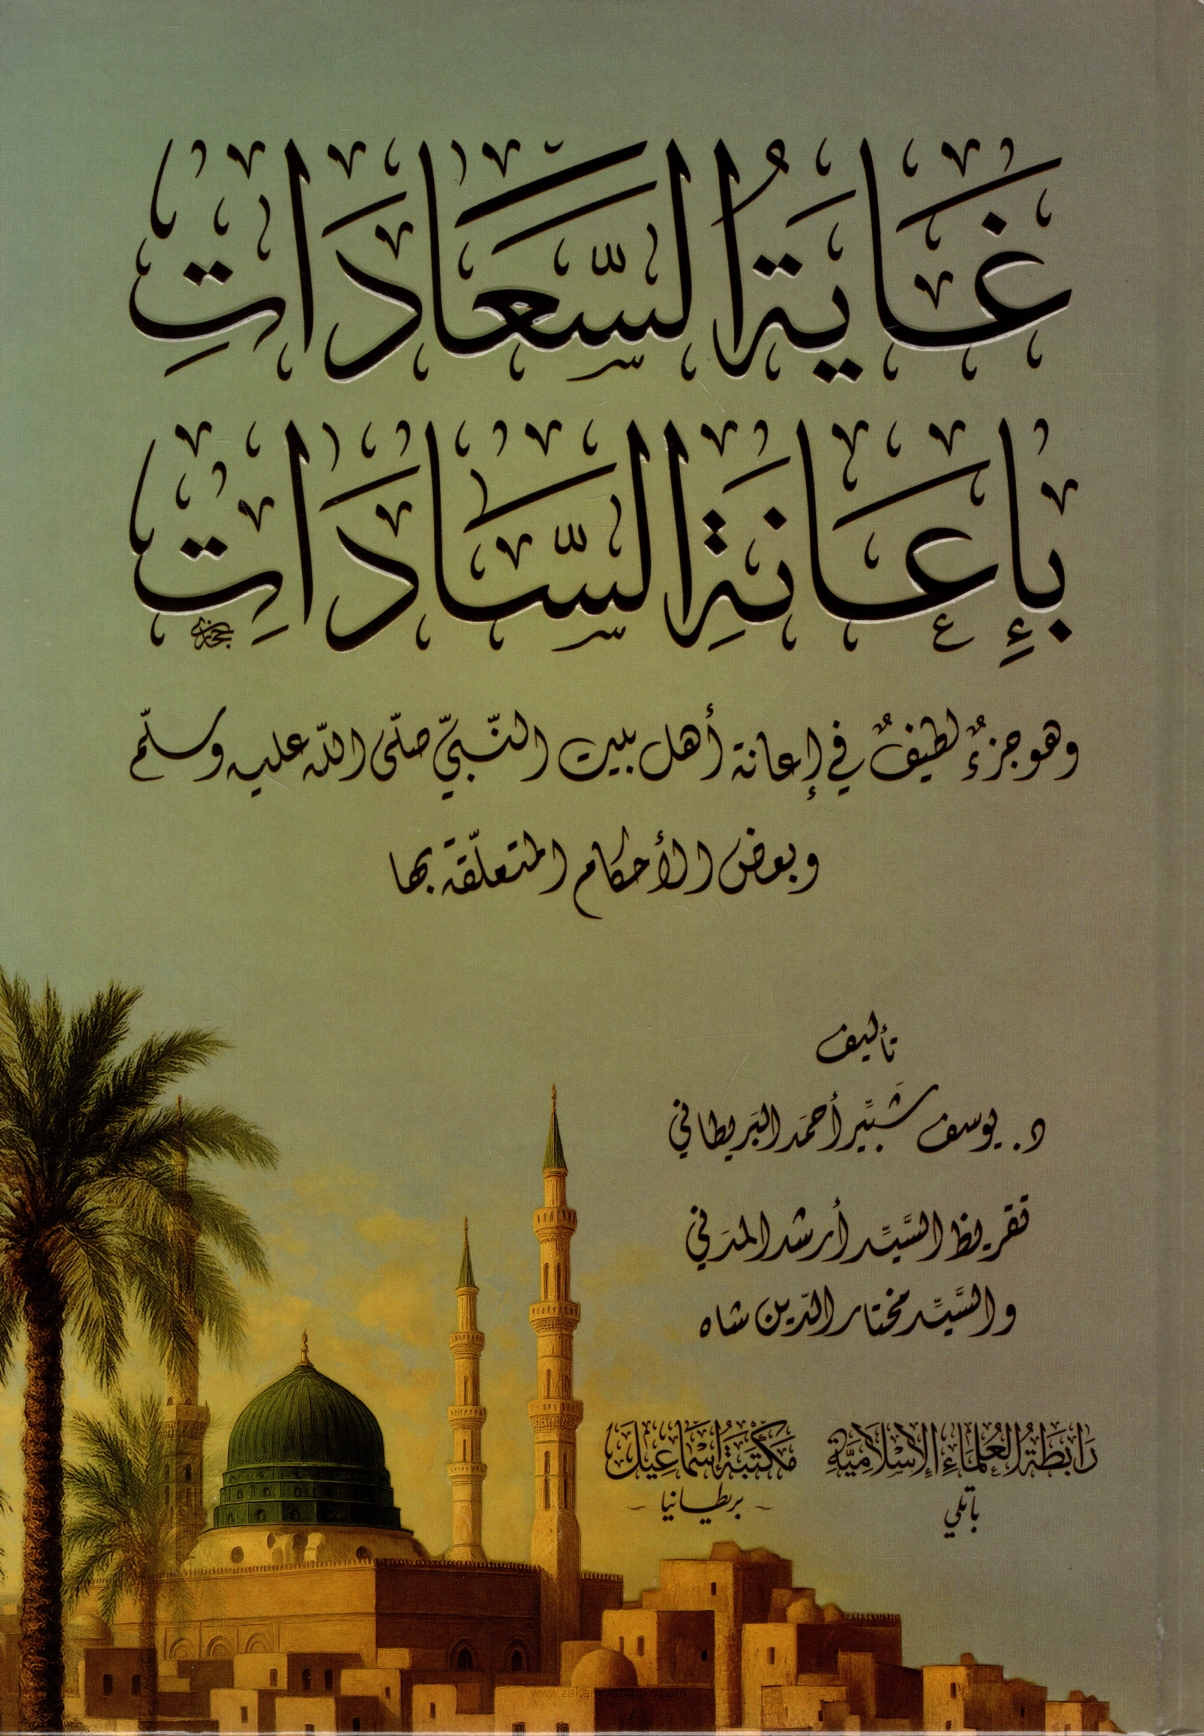 غَايَةُ السَّعَادَاتِ
بِإِعَانَةِ السَّادَاتِ
وهو جزءٌ لطيفٌ في إعانة أهل بيت النّبيّ صلّى اللّه عليه وسلّم
وبعض الأحكام المتعلّقة بها
تأليف
د. يوسف شَبِّير أحمَد البَريطاني
تقريظ السَّيِّد أرشد المدَني
والسَّيِّد مختار الدّين شاه
رَابِطَةُ العُلَمَاءِ الإِسْلَامِيَّة
باتلي
مَكْتَبَةُ إِسْمَاعِيل
- بريطانيا -